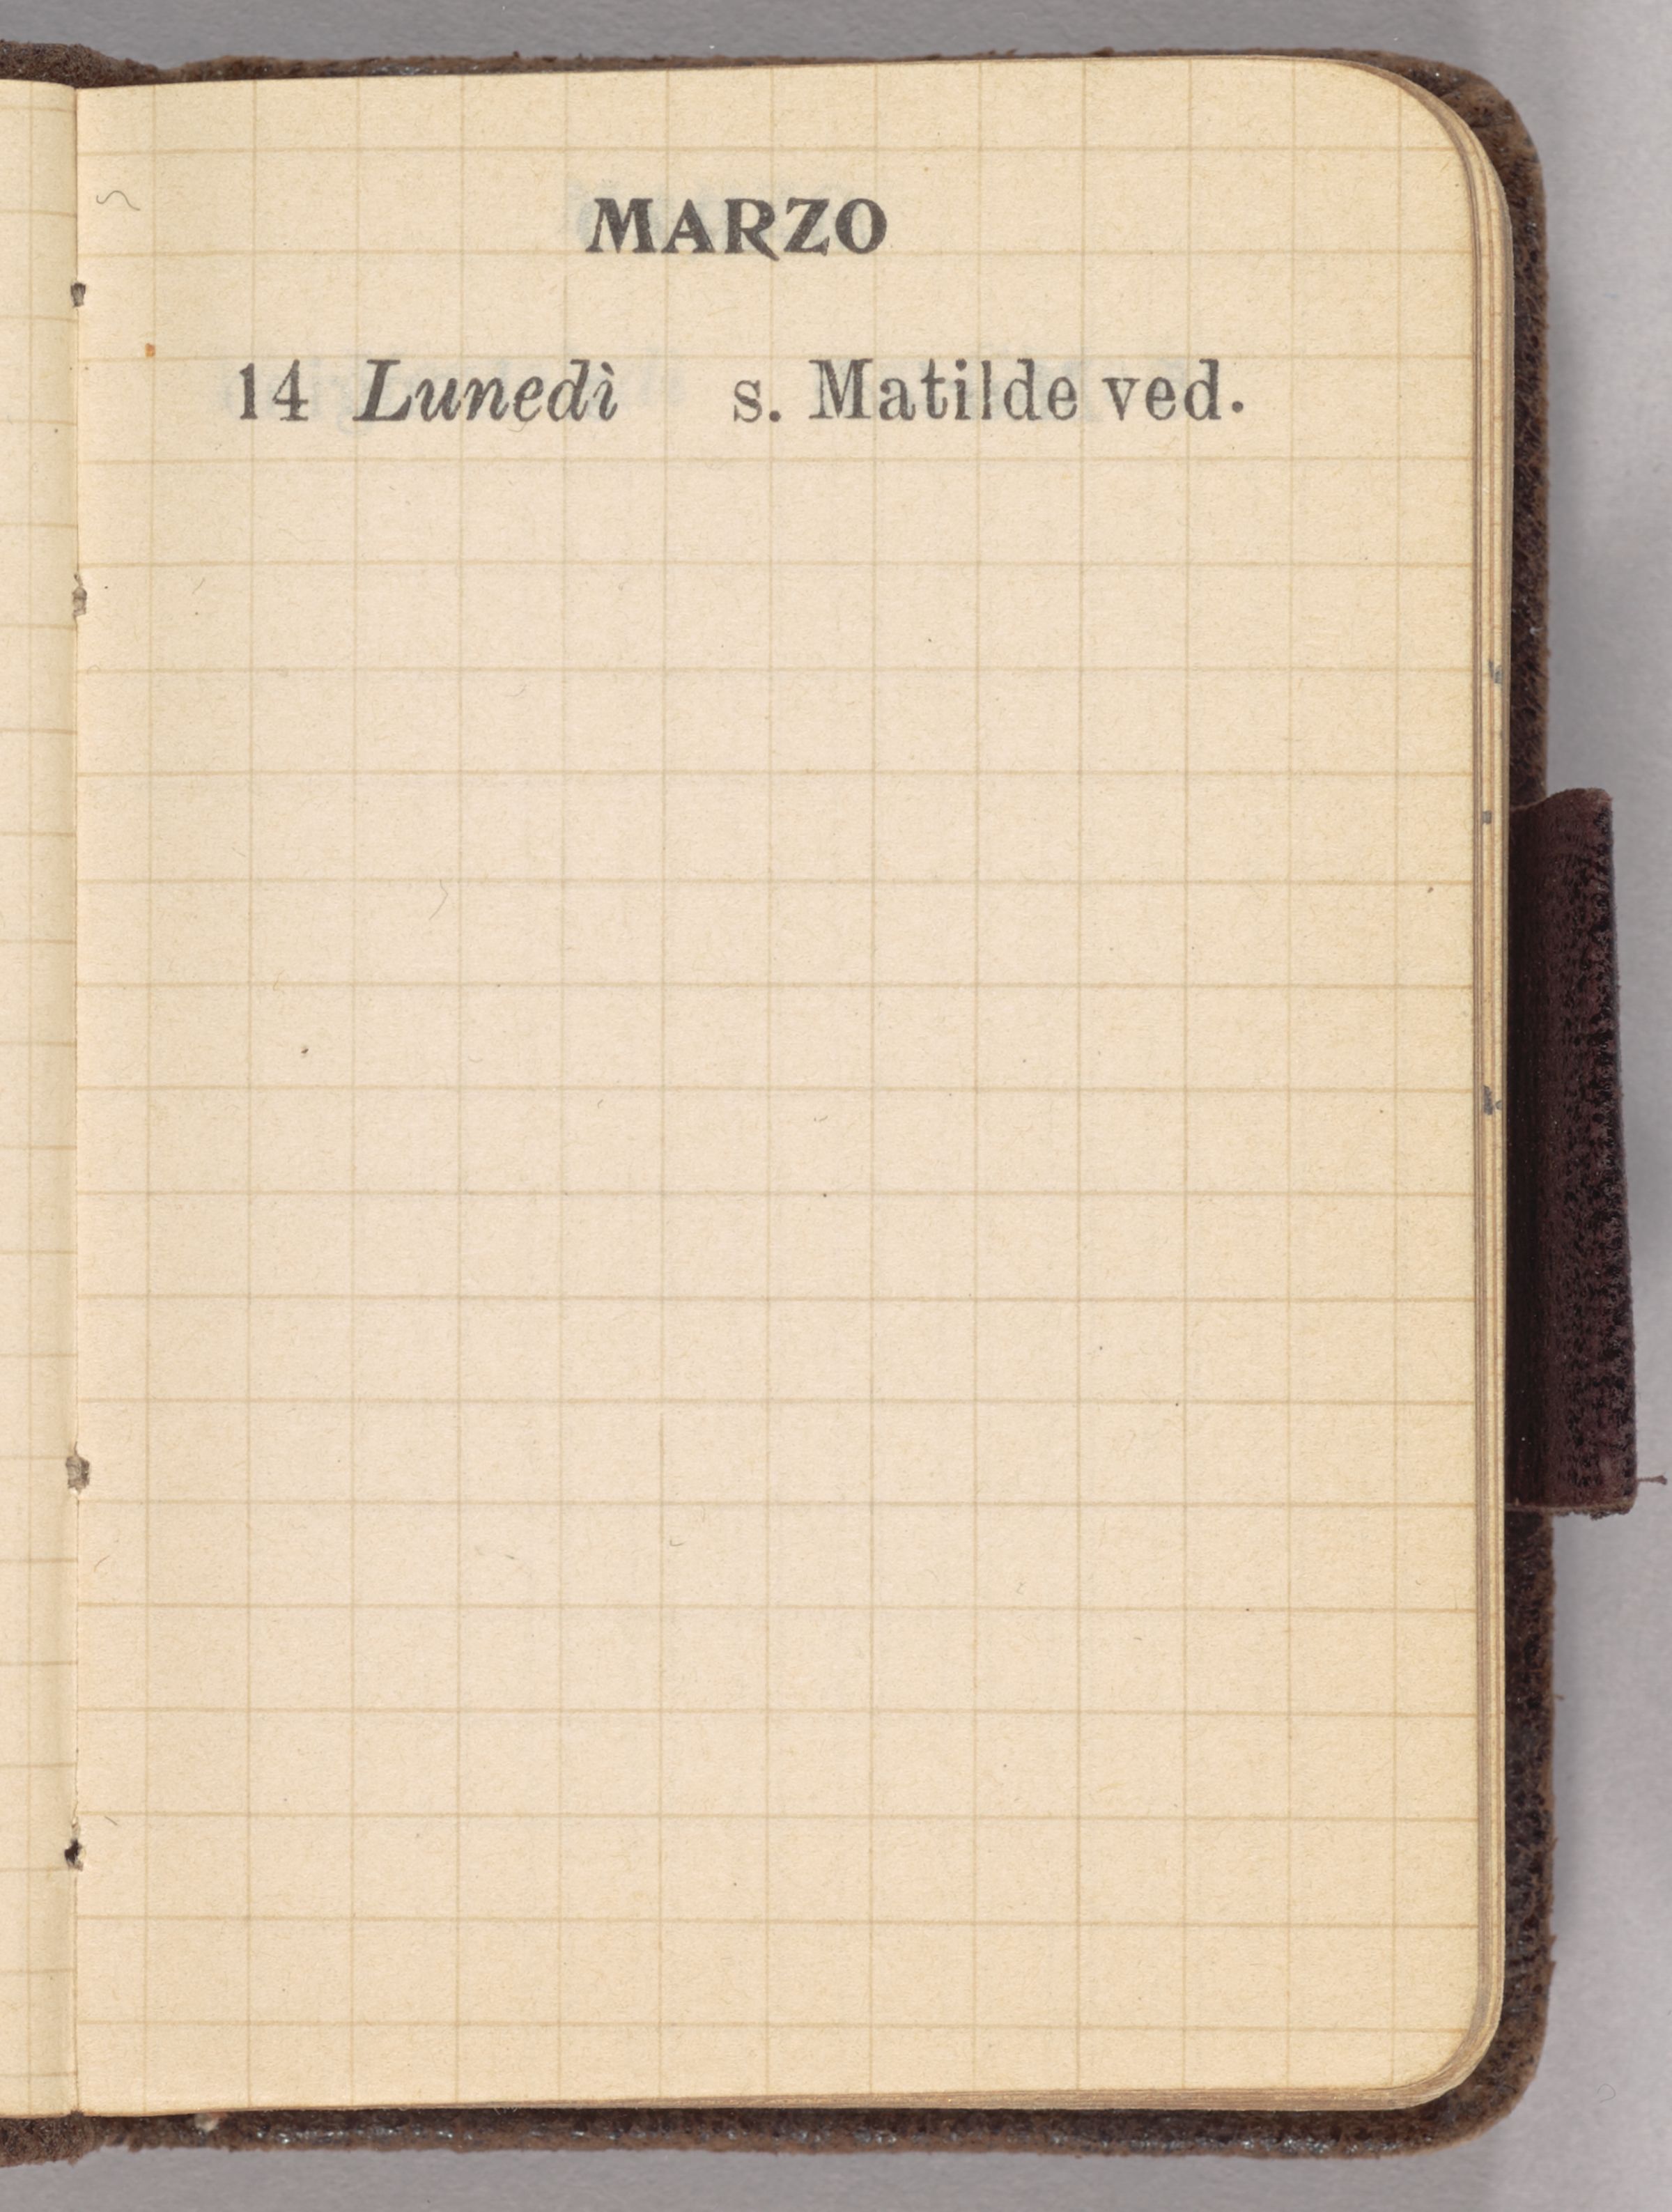 MARZO
14 Lunedì s. Matilde ved.